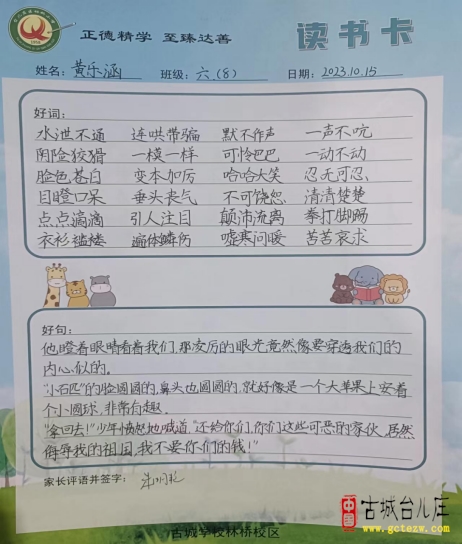 正德精学 至臻达善
读书卡
姓名：黄乐涵 班级：六.(8) 日期：2023.10.15
好词：
水泄不通 连哄带骗 默不作声 一声不吭
阴险狡猾 一模一样 可怜巴巴 一动不动
脸色苍白 变本加厉 哈哈大笑 忍无可忍
目瞪口呆 垂头丧气 不可饶恕 清清楚楚
点点滴滴 引人注目 颠沛流离 拳打脚踢
衣衫褴褛 遍体鳞伤 嘘寒问暖 苦苦哀求
好句：
他瞪着眼睛看着我们，那友厉的眼光竟然像要穿透我们的
内心似的。
"小石匹"的脸圆圆的，鼻头也圆圆的，就好像是一个大苹果上安着
个小圆球，非常有趣。
"拿回去！"少年愤怒地喊道，"还给你们，你们这些可恶的家伙，居然
侮辱我的祖国，我不要你们的钱！"
家长评语并签字：
古城学校林桥校区
中国 古城台儿庄
www.gctezw.com